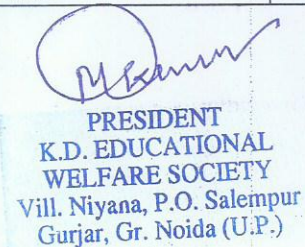 PRESIDENT
K.D. EDUCATIONAL
WELFARE SOCIETY
Vill. Niyana, P.O. Salempur
Gurjar, Gr. Noida (U.P.)